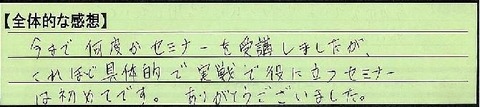 【全体的な感想】
今まで何度かセミナーを受講しましたが、
これほど具体的で実戦で役に立つセミナー
は初めてです。ありがとうございました。